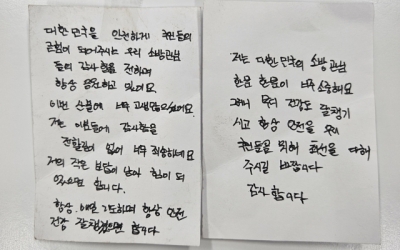 대한민국을 안전하게 국민들의
곁힘이 되어주시는 우리 소방관님
들의 감사함을 전하며
항상 응원하고 있어요.
이번 산불에 너무 고생많으셨어요.
저는 이분들에 감사함을
전할길이 없어 너무 죄송하네요
저의 작은 보답이 남아 힘이 되
었으면 합니다.
항상 매일 기도하며 항상 안전
건강 잘챙겼으면 합니다
저는 대한민국의 소방관님
한분 한분이 너무 소중해요
그러니 몸 건강도 잘챙기
시고 항상 안전을 우리
국민들을 위해 최선을 다해
주시길 바랍니다
감사합니다